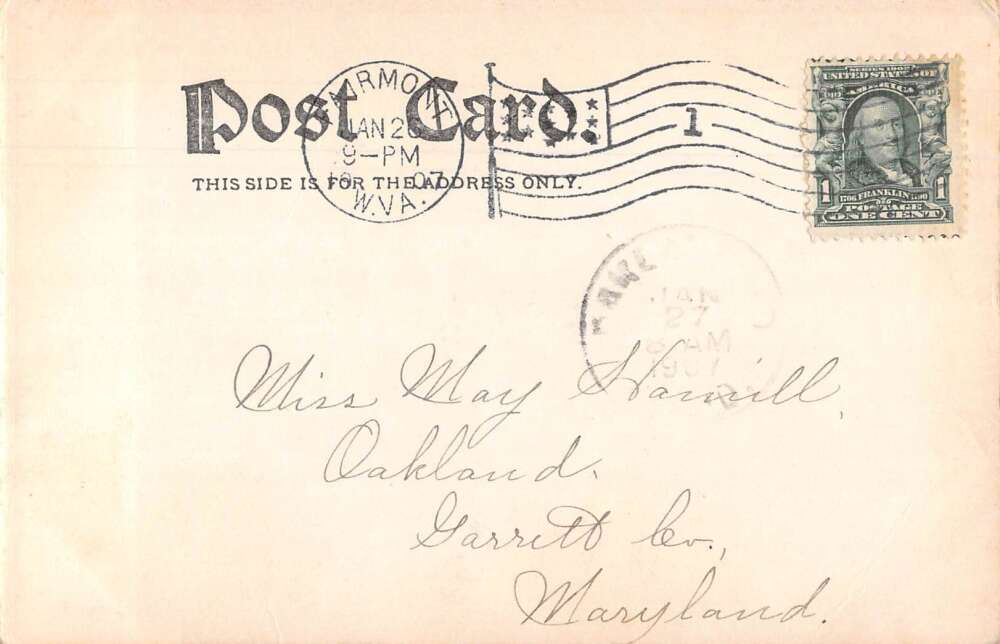 Post Card.
THIS SIDE IS FOR THE ADDRESS ONLY.
FAIRMONT
JAN 26
9-PM
1907
W.VA.
1
SERIES 1902
UNITED STATES OF
AMERICA
1706 FRANKLIN 1790
POSTAGE
1 ONE CENT 1
JAN
27
8 AM
1907
Miss May Hamill,
Oakland.
Garrett Co.,
Maryland.